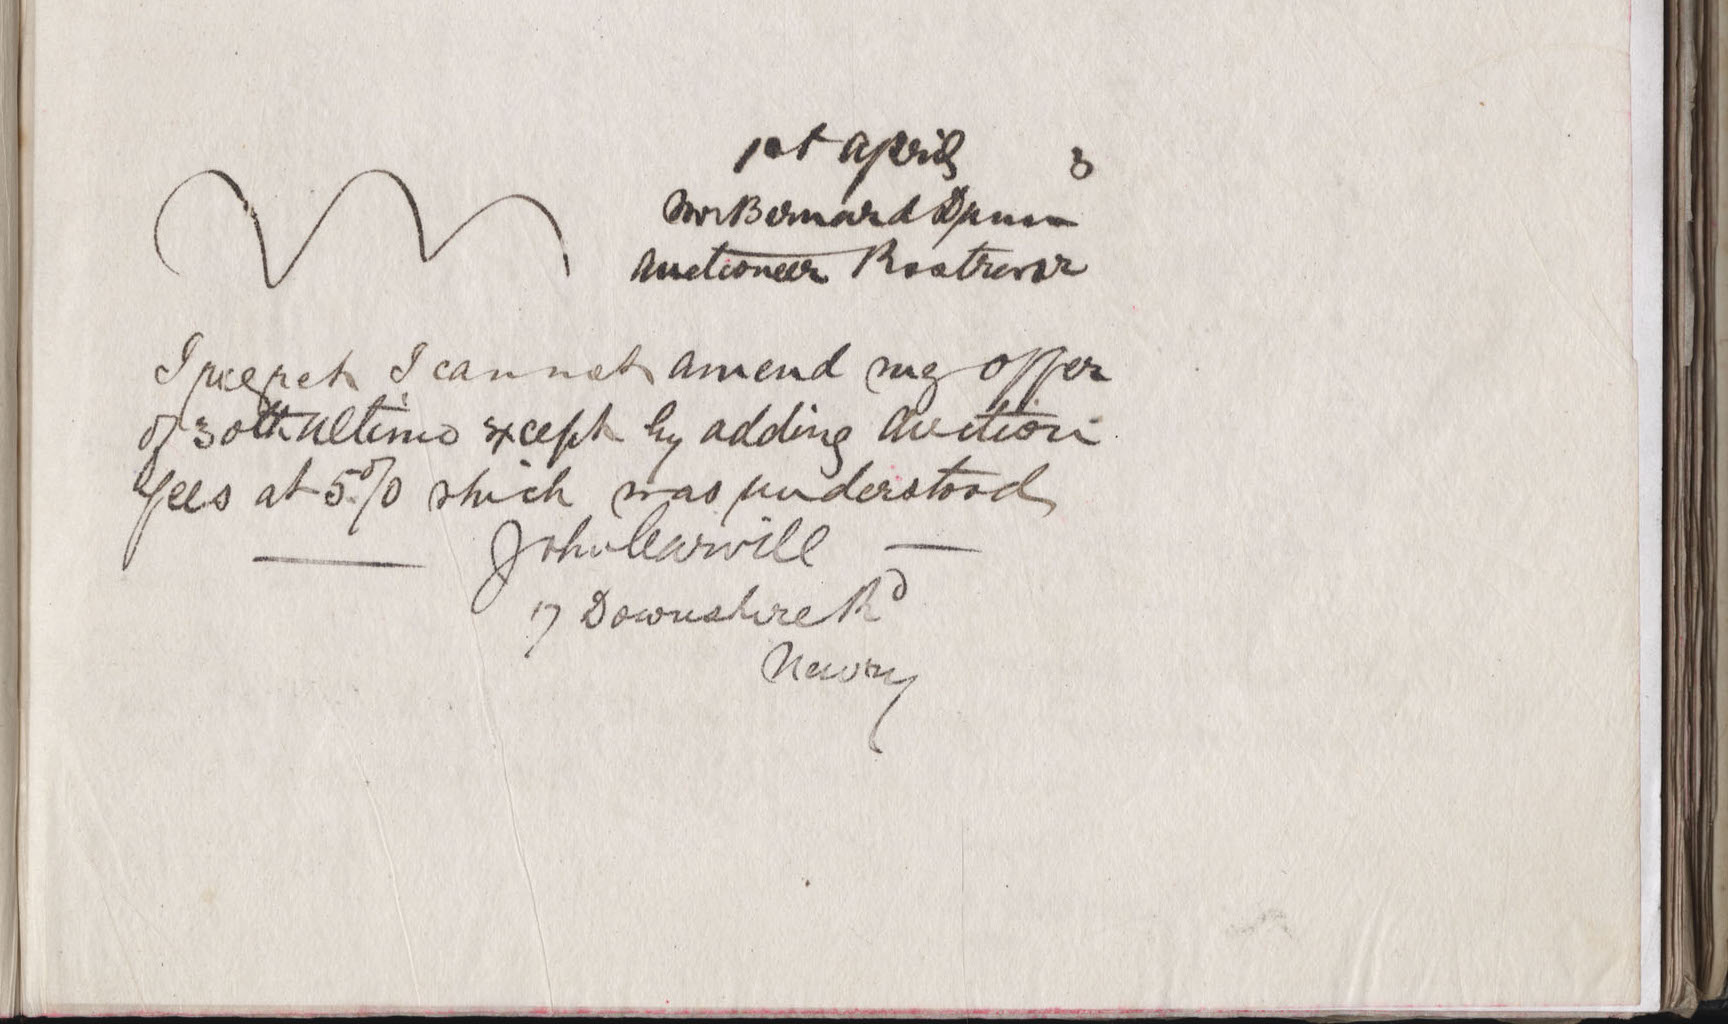 1st April 3
Mr Bernard Dunn
Auctioneer Rostrevor
I regret I cannot amend my offer
of 30th ultimo except by adding Auction
fees at 5% which was understood
John Carvill
17 Downshire Rd
Newry